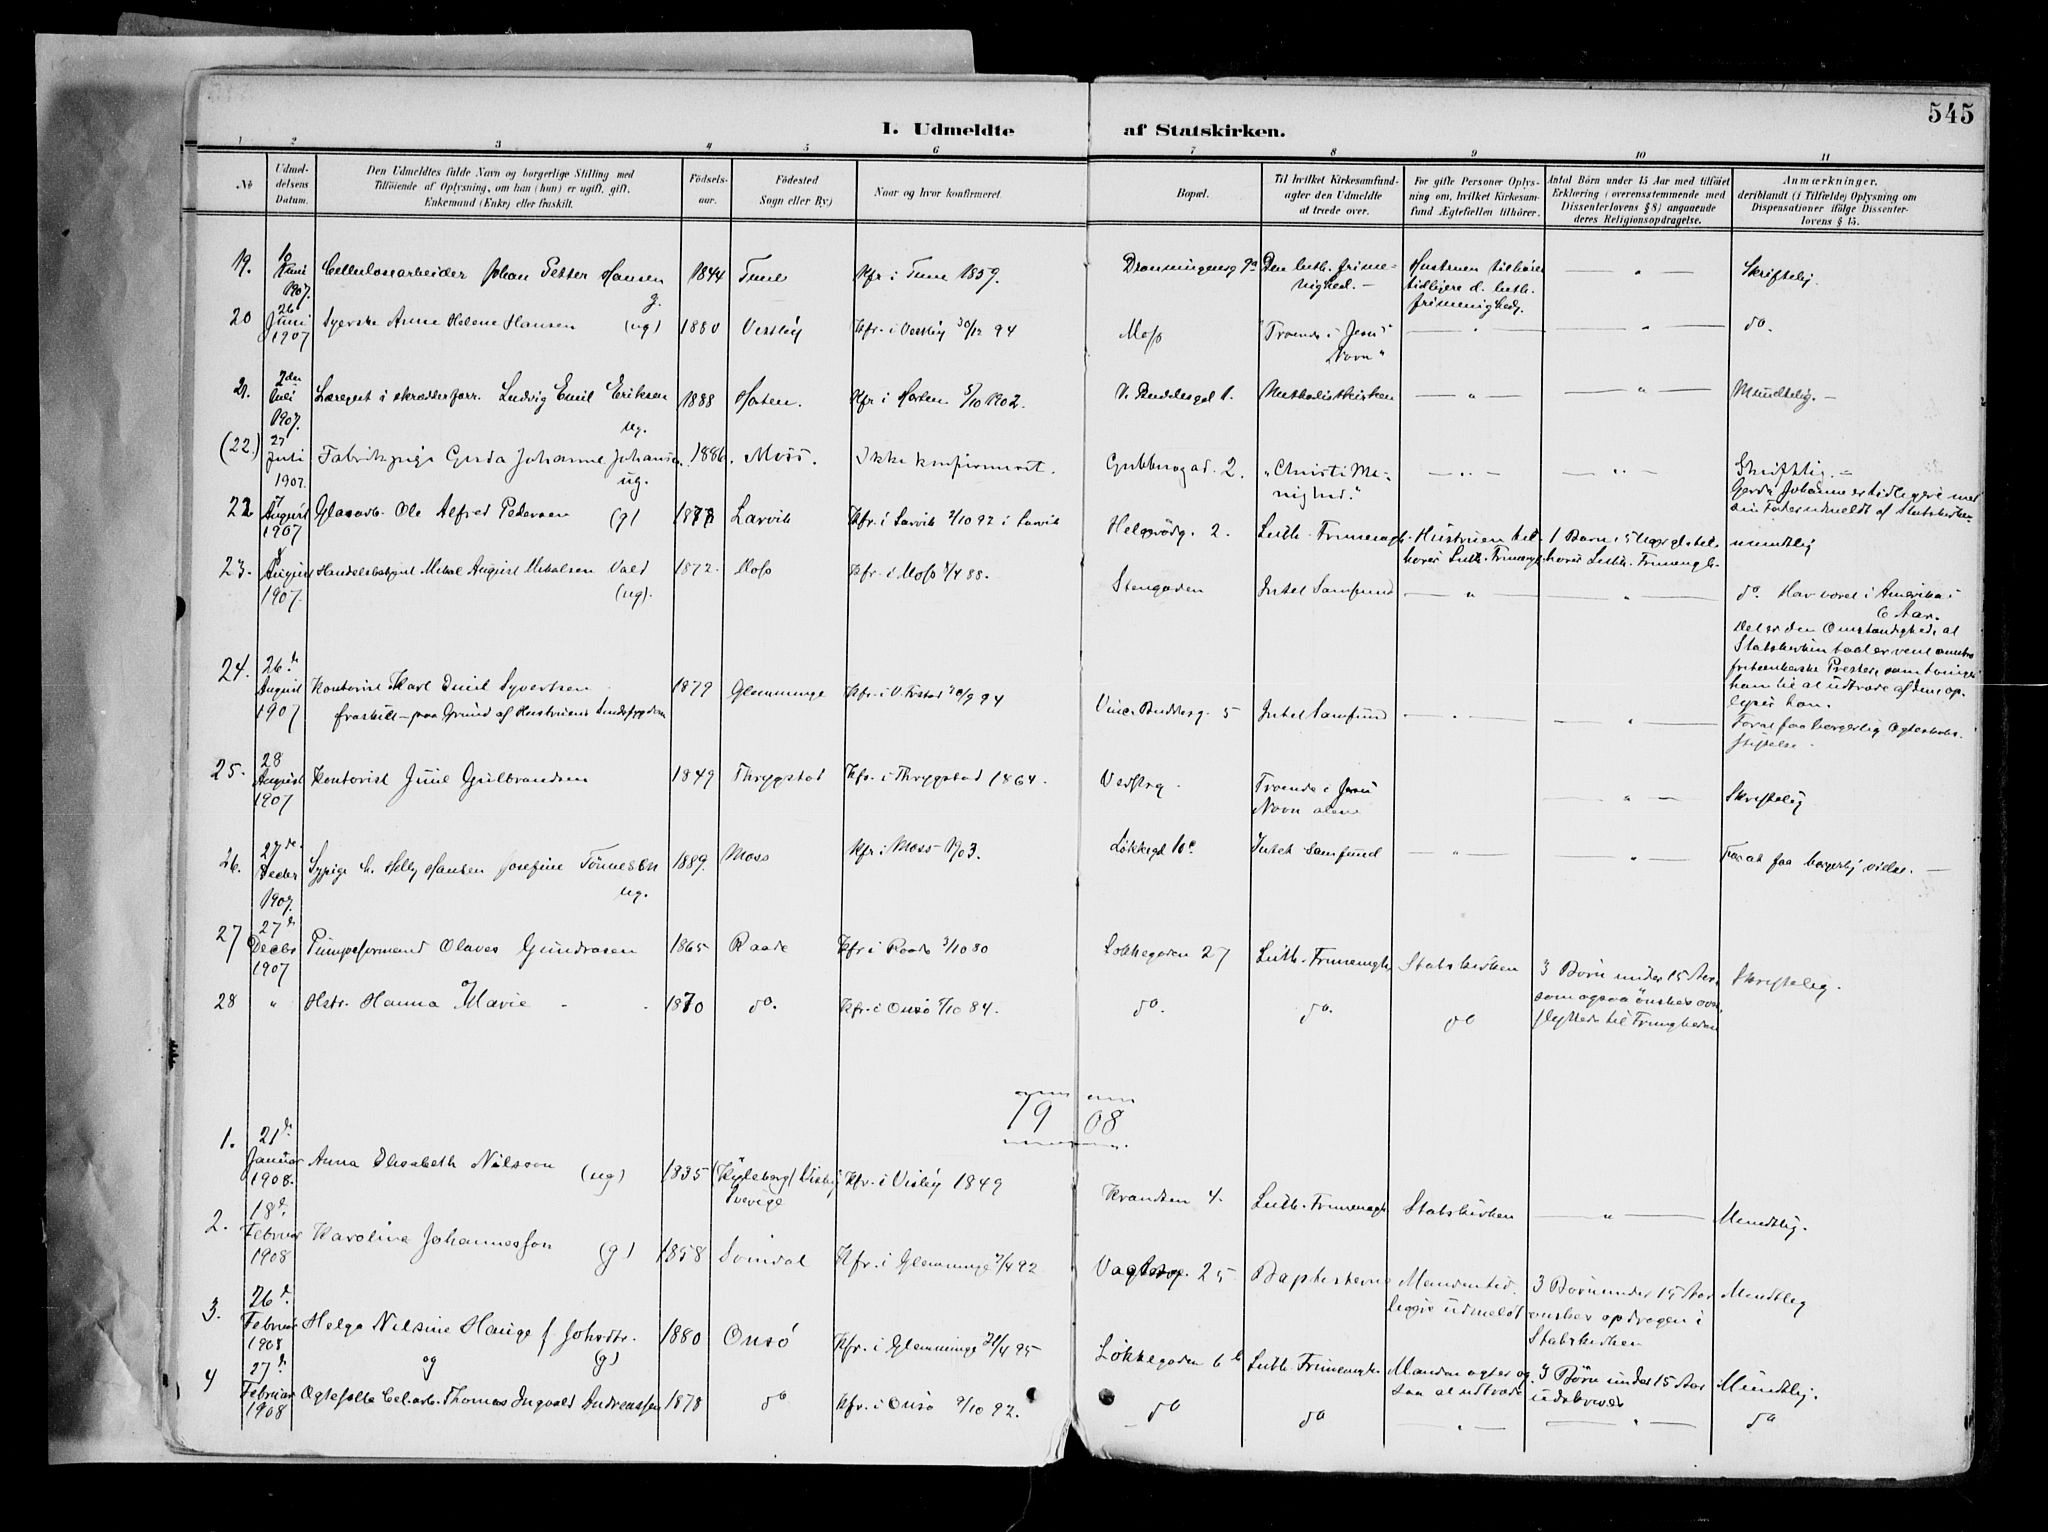 545
I. Udmeldte af Statskirken.
1 2 3 4 5 6 7 8 9 10 11
No
Udmeldelsens Datum.
Den Udmeldtes fulde Navn og borgerlige Stilling med
Tilföiende af Oplysning, om han (hun) er ugift, gift,
Enkemand (Enke) eller fraskilt.
Födselsaar.
Födested
Sogn eller By)
Naar og hvor konfirmeret.
Bopæl.
Til hvilket Kirkesamfund
agter den Udmeldte
at træde over.
For gifte Personer Oplysning om, hvilket Kirkesamfund Ægtefællen tilhörer.
Antal Börn under 15 Aar med tilföiet
Erklæring (overensstemmende med
Dissenterlovens § 8) angaaende
deres Religionsopdragelse.
Anmærkninger,
deriblandt (i Tilfælde) Oplysning om
Dispensationer ifölge Dissenterlovens § 15.
19. 10 Juni 1907. Cellulosearbeider Johan Petter Hansen g. 1844 Tune Kfr i Tune 1859. Dronningensg 9a Den luth. frimenighed. — Hustruen tilhører tidligere d. luth. frimenighed. — " — Skriftelig.
20 26 Juni 1907 Syerske Anne Helene Hansen (ug) 1880 Vestby Kfr. i Vestby 30/12 94 Moss "Troende i Jesu Navn" — " — — " — do.
21. 2den Juli 1907. Læregut i skrædderforr. Ludvig Emil Eriksen ug. 1888 Horten. Kfr i Horten 5/10 1902. V. Buddesgd 1. Methodistkirken — " — — " — Mundtlig. —
(22.) 27 Juli 1907. Fabrikpige Gerda Johanne Johansen ug. 1886. Moss. Ikke konfirmeret. Gubbenogad. 2. "Christi Menighed." — " — — " — Skriftlig. —
Gerda Johanne er tidligere med
sin Fader udmeldt af Statskirken
22 7 August 1907 Glasarb. Ole Alfred Pedersen (g) 1877 Larvik Kfr. i Larvik 2/10 92 i Larvik Helgerödg. 2. Luth. Frimenigh. Hustruen tilhører Luth. Frimenigh. 1 Barn i 5 tilhører Luth. Frimengh. mundtlig
23. 8 August 1907. Mikal August Mikalsen Vald (ug). 1872. Moss Kfr. i Moss 8/4 88. Stengaden Intet Samfund — " — — " — do. Har været i Amerika i
6 Aar.
24. 26de August 1907 Kontorist Karl Emil Syvertsen
fraskilt — paa Grund af Hustruens 1879 Glemminge Kfr. i V. Frstad 30/9 94 Vinc. Buddesg. 5 Intet Samfund — " — — " —
Det er den Omstændighed, at
Statskirken taaler vantro
fritænkerske Prester, som tvinger
ham til at udtræde af den, oplyser han.
For at faa borgerlig Ægteskabsstiftelse.
25. 28 August 1907 Kontorist Juul Gulbrandsen 1849 Thrygstad Kfr. i Thrygstad 1864. Verftsg. Troende i Jesu Navn alene — " — Skriftelig
26. 27de Decbr 1907. Sypige h. Helly Hansen Josefine Tönnesen ug. 1889. Moss Kfr. i Moss 1903. Løkkegd 10c Intet Samfund — " — — " — For at faa borgerlig vielse. —
27 27de Decbr 1907 Pumpeformand Olaves Gundrosen 1865 Raade Kfr i Raade 3/10 80 Løkkegaden 27 Luth. Frimenigh. Statskirken 3 Børn under 15 Aar,
som ogsaa ønskes overflyttede til Frimgheden Skriftelig.
28 " Hstr. Hanna Marie og 1870 do. Kfr. i Onsö 7/10 84. do. do. do
1908
1. 21de Januar 1908. Anna Elisabeth Nilsson (ug) 1835 Sverige Kfr. i Visby 1849 Krandsen 4. Luth. Frimenigh. Statskirken — " — Mundtlig.
2. 18de Februar 1908 Karoline Johannesson (g) 1858 Svindal Kfr. i Glemminge 2/4 92 Vogtsg. 25 Baptisterne Manden tidligere udmeldt 3 Børn under 15 Aar
ønskes opdragen i
Statskirken Mundtlig
3. 26de Februar 1908 Helga Nilsine Hauge f. Johsdtr. (g) og 1880 Onsö Kfr. i Glemminge 21/4 95 Løkkegaden 6b Luth. Frimenigh. Manden agter ogsaa at udtræde 3 Børn under 15 Aar
udskrives Mundtlig.
4 27de Februar 1908 Ægtefælle Cel.arb. Thomas Ingvald Andreassen 1878 do Kfr. i Onsö 9/10 92. do do — " — — " — do